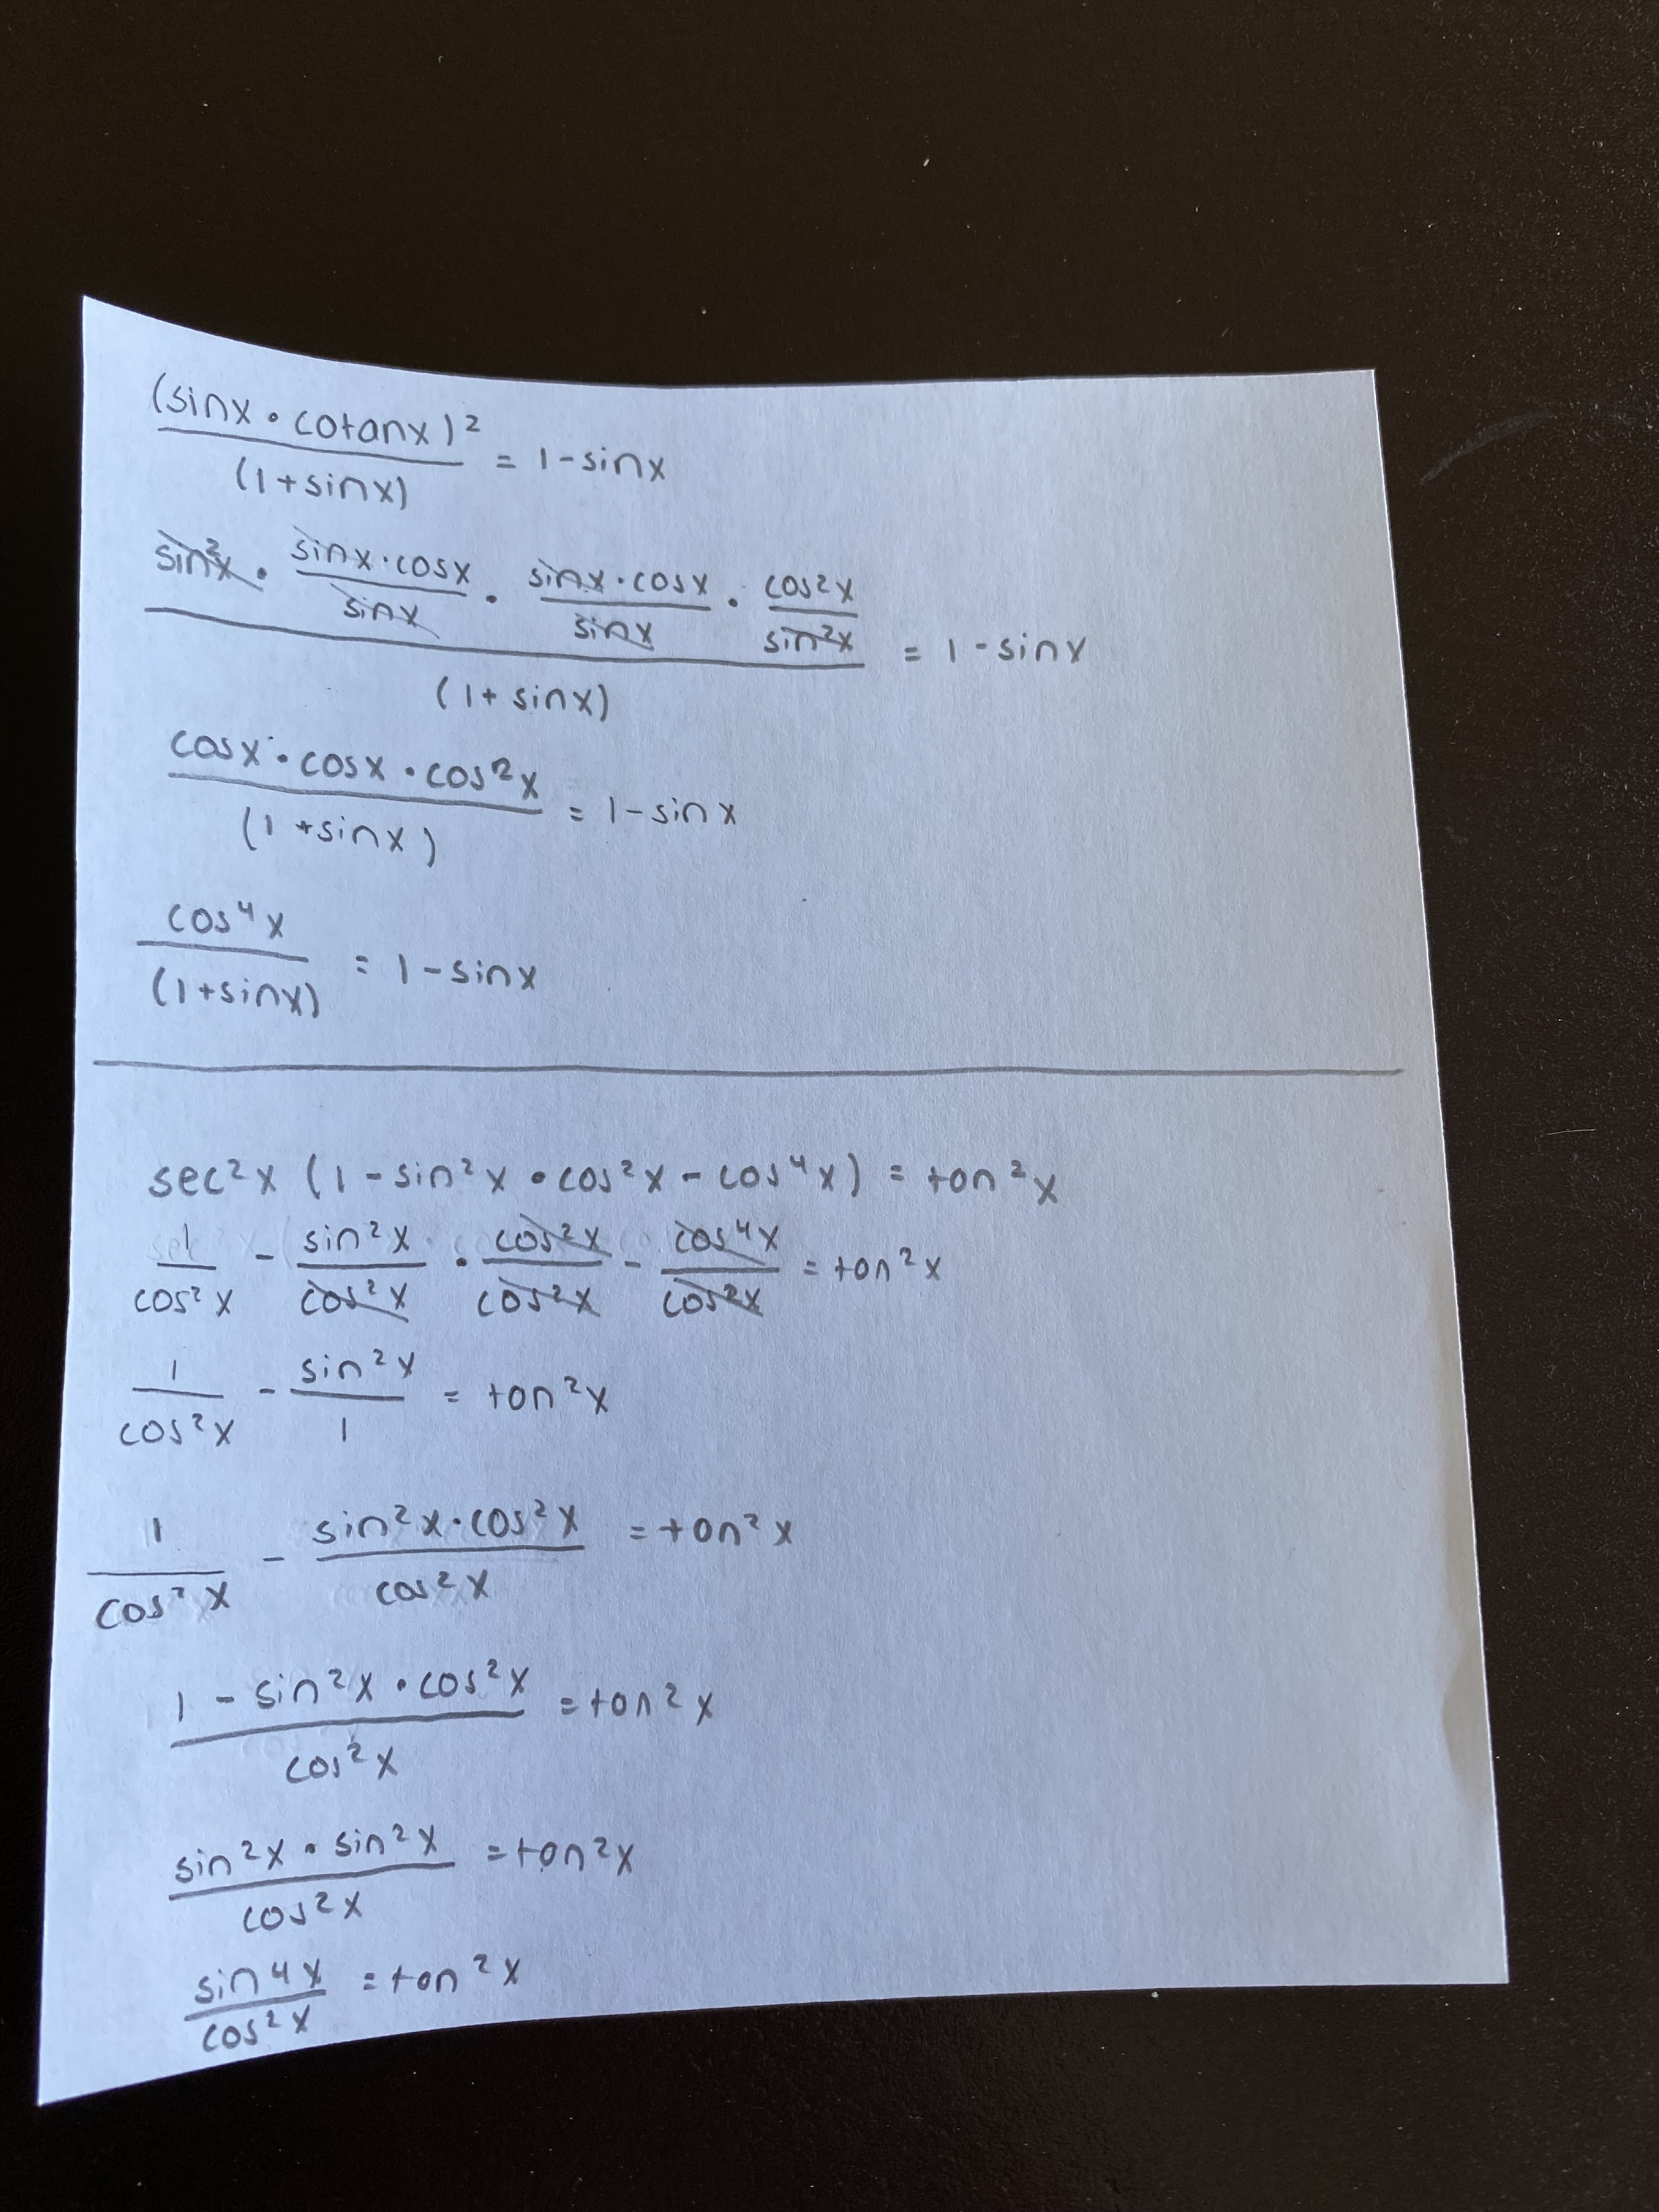 (sinx · cotanx)² / (1+sinx) = 1-sinx
sin²x · sinx·cosx / sinx · sinx·cosx / sinx · cos²x / sin²x / (1+sinx) = 1-sinx
cosx · cosx · cos²x / (1+sinx) = 1-sinx
cos⁴x / (1+sinx) = 1-sinx
sec²x (1-sin²x · cos²x - cos⁴x) = ton²x
1 / cos²x - sin²x / cos²x · cos²x / cos²x - cos⁴x / cos²x = ton²x
1 / cos²x - sin²x / 1 = ton²x
1 / cos²x - sin²x·cos²x / cos²x = ton²x
1 - sin²x · cos²x / cos²x = ton²x
sin²x · sin²x / cos²x = ton²x
sin4x / cos²x = ton²x